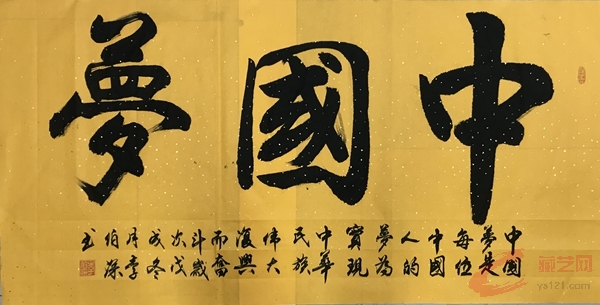 中國夢
中國
夢是
每位
中國
人的
夢為
實現
中華
民族
偉大
復興
而奮
斗歲
次戊
戌冬
月李
伯深
书